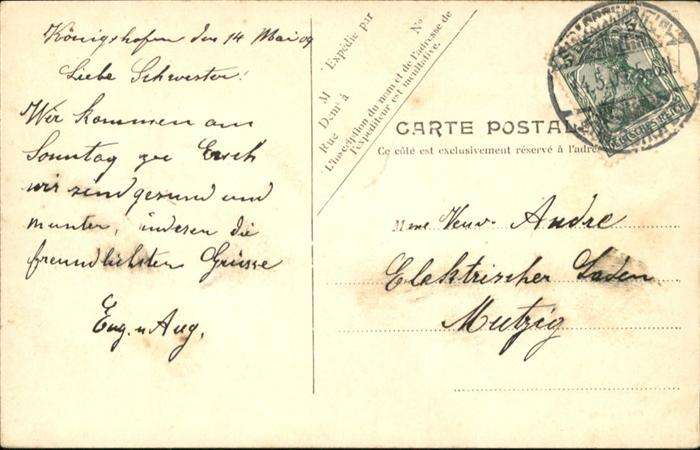 Königshofen den 14 Mai 09
Liebe Schwester!
Wir kommen am
Sonntag zu Euch
wir sind gesund und
munter, inderen die
freundlichsten Grüsse
Eug. u Aug.
Expédié par
M
No
Demt à
Rue
L'inscription du nom et de l'adresse de
l'expéditeur est facultative.
CARTE POSTALE
Ce côté est exclusivement réservé à l'adresse
Mme Veuv. Andre
Elektrischer Laden
Mutzig